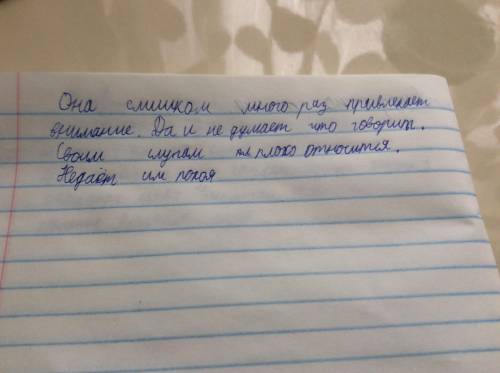 Она слишком много раз привлекает
внимание. Да и не думает что говорит.
Своим слугам плохо относится.
Недаёт им покоя